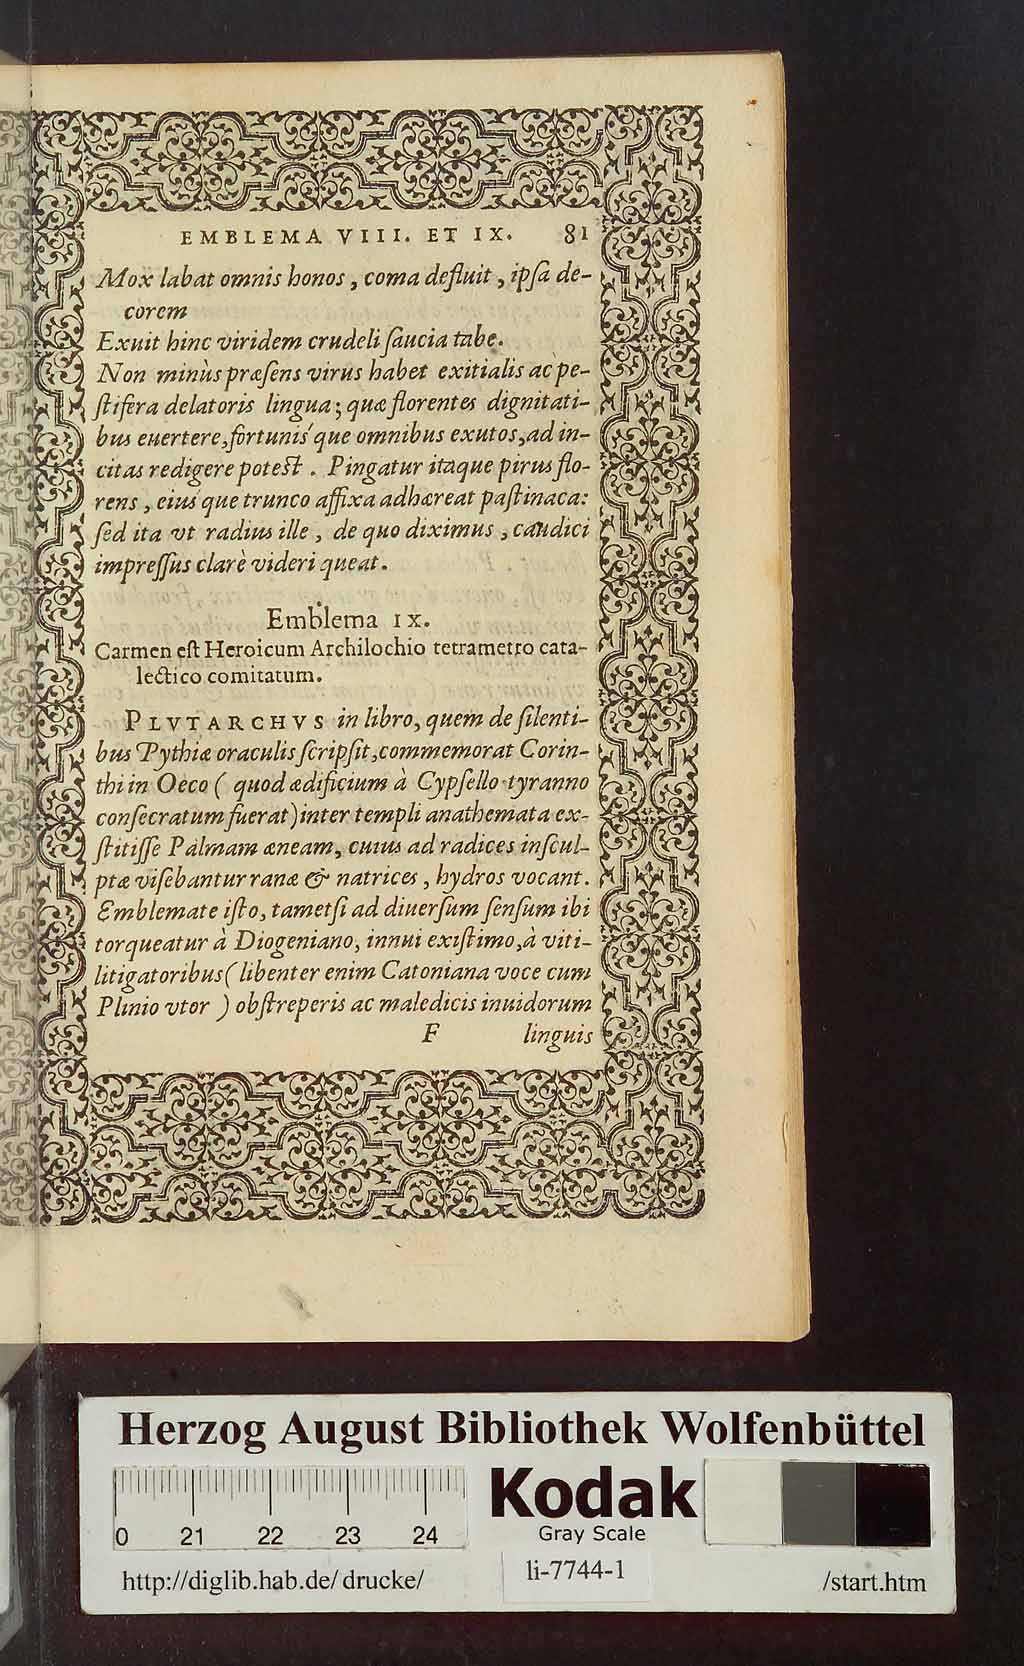 EMBLEMA VIII. ET IX. 81
Mox labat omnis honos, coma defluit, ipſa de-
corem
Exuit hinc viridem crudeli ſaucia tabe.
Non minùs præſens virus habet exitialis ac pe-
ſtifera delatoris lingua; quæ florentes dignitati-
bus euertere, fortunis´que omnibus exutos, ad in-
citas redigere poteſt. Pingatur itaque pirus flo-
rens, eius´que trunco affixa adhæreat paſtinaca:
ſed ita vt radius ille, de quo diximus, caudici
impreſſus clarè videri queat.
Emblema IX.
Carmen eſt Heroicum Archilochio tetrametro cata-
lectico comitatum.
PLVTARCHVS in libro, quem de ſilenti-
bus Pythiæ oraculis ſcripſit, commemorat Corin-
thi in Oeco ( quod ædificium à Cypſello tyranno
conſecratum fuerat) inter templi anathemata ex-
ſtitiſſe Palmam æneam, cuius ad radices inſcul-
ptæ viſebantur ranæ & natrices, hydros vocant.
Emblemate iſto, tametſi ad diuerſum ſenſum ibi
torqueatur à Diogeniano, innui exiſtimo, à viti-
litigatoribus (libenter enim Catoniana voce cum
Plinio vtor ) obſtreperis ac maledicis inuidorum
F linguis
Herzog August Bibliothek Wolfenbüttel
Kodak
Gray Scale
0 21 22 23 24
li-7744-1
http://diglib.hab.de/drucke/ /start.htm